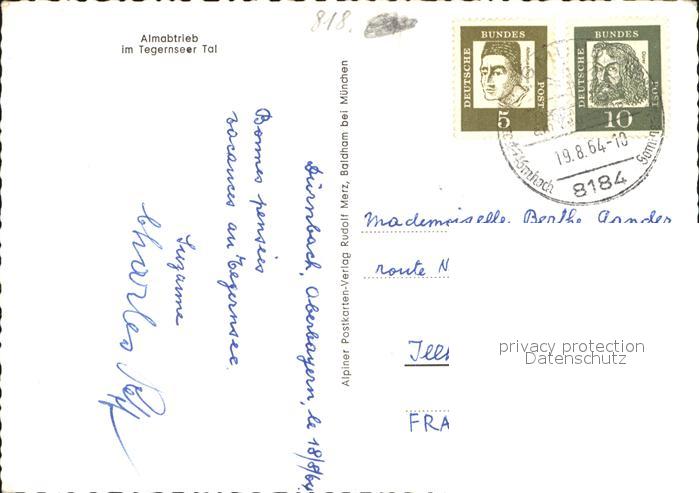 818.
Almabtrieb
im Tegernseer Tal
Dürnbach, Oberbayern, le 18/8/64
Bonnes pensées
vacances au Tegernsee.
Suzanne
Charles
Alpiner Postkarten-Verlag Rudolf Merz, Baldham bei München
DEUTSCHE BUNDES POST
5
DEUTSCHE BUNDES POST
10
19.8.64-10
8184
Mademoiselle Berthe
route N
Ills
FRA
privacy protection
Datenschutz